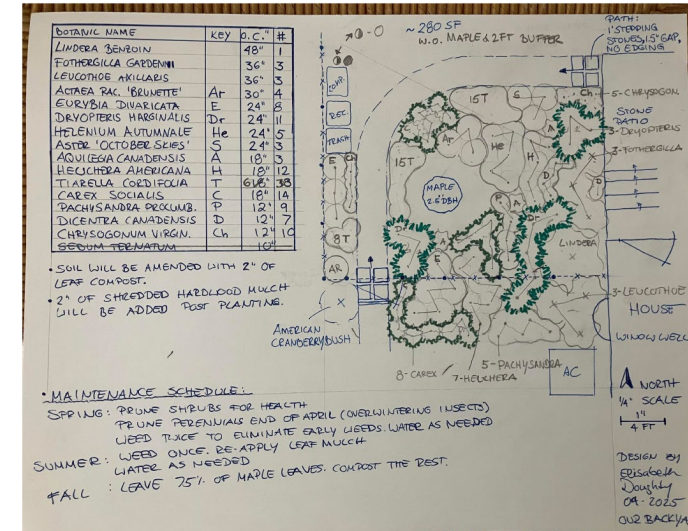 BOTANIC NAME KEY O.C." #
LINDERA BENZOIN 48" 1
FOTHERGILLA GARDENII 36" 3
LEUCOTHOE AXILLARIS 36" 3
ACTAEA RAC. 'BRUNETTE' Ar 30" 4
EURYBIA DIVARICATA E 24" 8
DRYOPTERIS MARGINALIS Dr 24" 11
HELENIUM AUTUMNALE He 24" 5
ASTER 'OCTOBER SKIES' S 24" 3
AQUILEGIA CANADENSIS A 18" 3
HEUCHERA AMERICANA H 18" 12
TIARELLA CORDIFOLIA T 38
CAREX SOCIALIS C 18" 14
PACHYSANDRA PROCUMB. P 12" 9
DICENTRA CANADENSIS D 12" 7
CHRYSOGONUM VIRGIN. Ch 12" 10
SEDUM TERNATUM 10"
• SOIL WILL BE AMENDED WITH 2" OF
LEAF COMPOST.
• 2" OF SHREDDED HARDWOOD MULCH
WILL BE ADDED POST PLANTING.
~280 SF
W.O. MAPLE & 2FT BUFFER
PATH:
1' STEPPING
STONES, 1.5" GAP,
NO EDGING
COMP.
REC.
TRASH
E
Ch
8T
AR
15T
S
Ch
5-CHRYSOGON
STONE
PATIO
3-DRYOPTERIS
3-FOTHERGILLA
Ar
He
A
15T
H
D
MAPLE
26" DBH
P
A
Dr
Dr
D
E
A
LINDERA
3-LEUCOTHOE
HOUSE
WINDOW WELL
AMERICAN
CRANBERRYBUSH
8-CAREX
7-HEUCHERA
5-PACHYSANDRA
AC
NORTH
1/4" SCALE
1"
4 FT
DESIGN BY
Elisabeth
Doughty
04-2025
OUR BACKYA
• MAINTENANCE SCHEDULE:
SPRING: PRUNE SHRUBS FOR HEALTH
PRUNE PERENNIALS END OF APRIL (OVERWINTERING INSECTS)
WEED TWICE TO ELIMINATE EARLY WEEDS. WATER AS NEEDED
SUMMER: WEED ONCE. RE-APPLY LEAF MULCH
WATER AS NEEDED
FALL: LEAVE 75% OF MAPLE LEAVES. COMPOST THE REST.